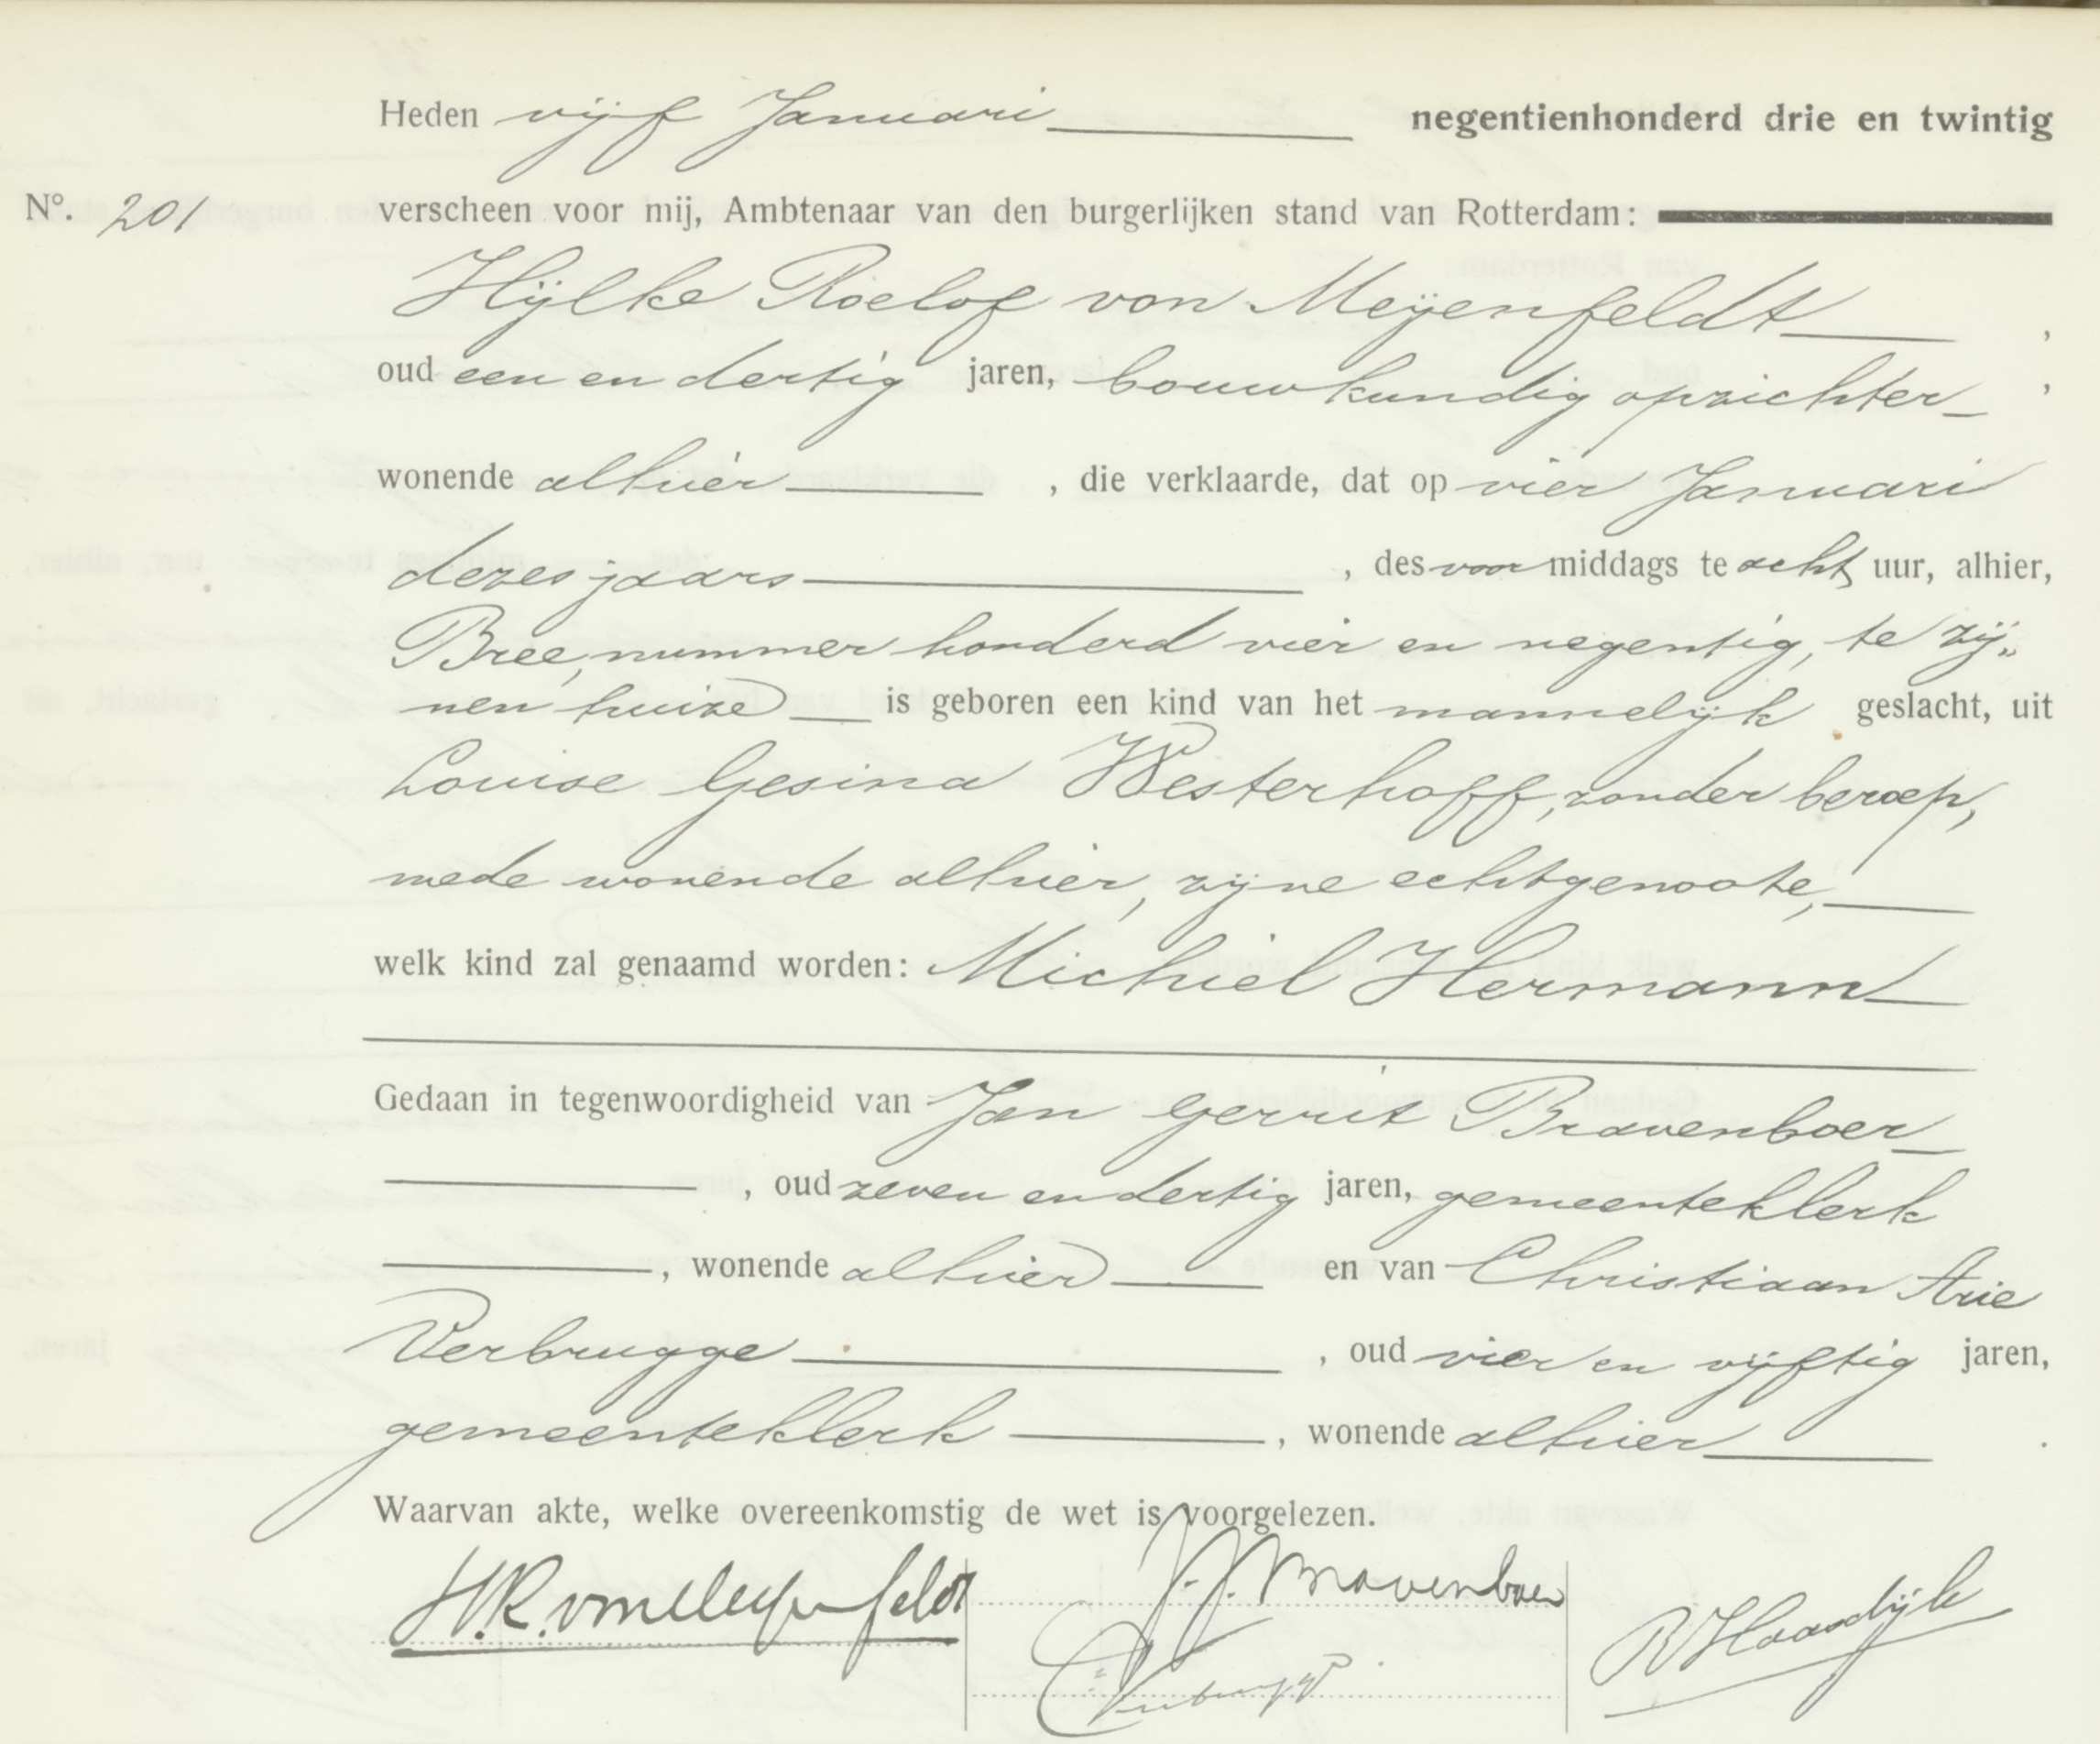 Heden vijf Januari negentienhonderd drie en twintig
Nº. 201 verscheen voor mij, Ambtenaar van den burgerlijken stand van Rotterdam:
Hijlke Roelof von Meijenfeldt,
oud een en dertig jaren, bouwkundig opzichter,
wonende alhier, die verklaarde, dat op vier Januari
dezes jaars, des voor middags te acht uur, alhier,
Bree, nummer honderd vier en negentig, te zij„
nen huize is geboren een kind van het mannelijk geslacht, uit
Louise Gesina Westerhoff, zonder beroep,
mede wonende alhier, zijne echtgenoote,
welk kind zal genaamd worden: Michiel Hermann
Gedaan in tegenwoordigheid van Jan Gerrit Bravenboer
, oud zeven en dertig jaren, gemeenteklerk
, wonende alhier en van Christiaan Arie
Verbrugge, oud vier en vijftig jaren,
gemeenteklerk, wonende alhier.
Waarvan akte, welke overeenkomstig de wet is voorgelezen.
H.R. von Meijenfeldt J.G. Bravenboer
Verbrugge